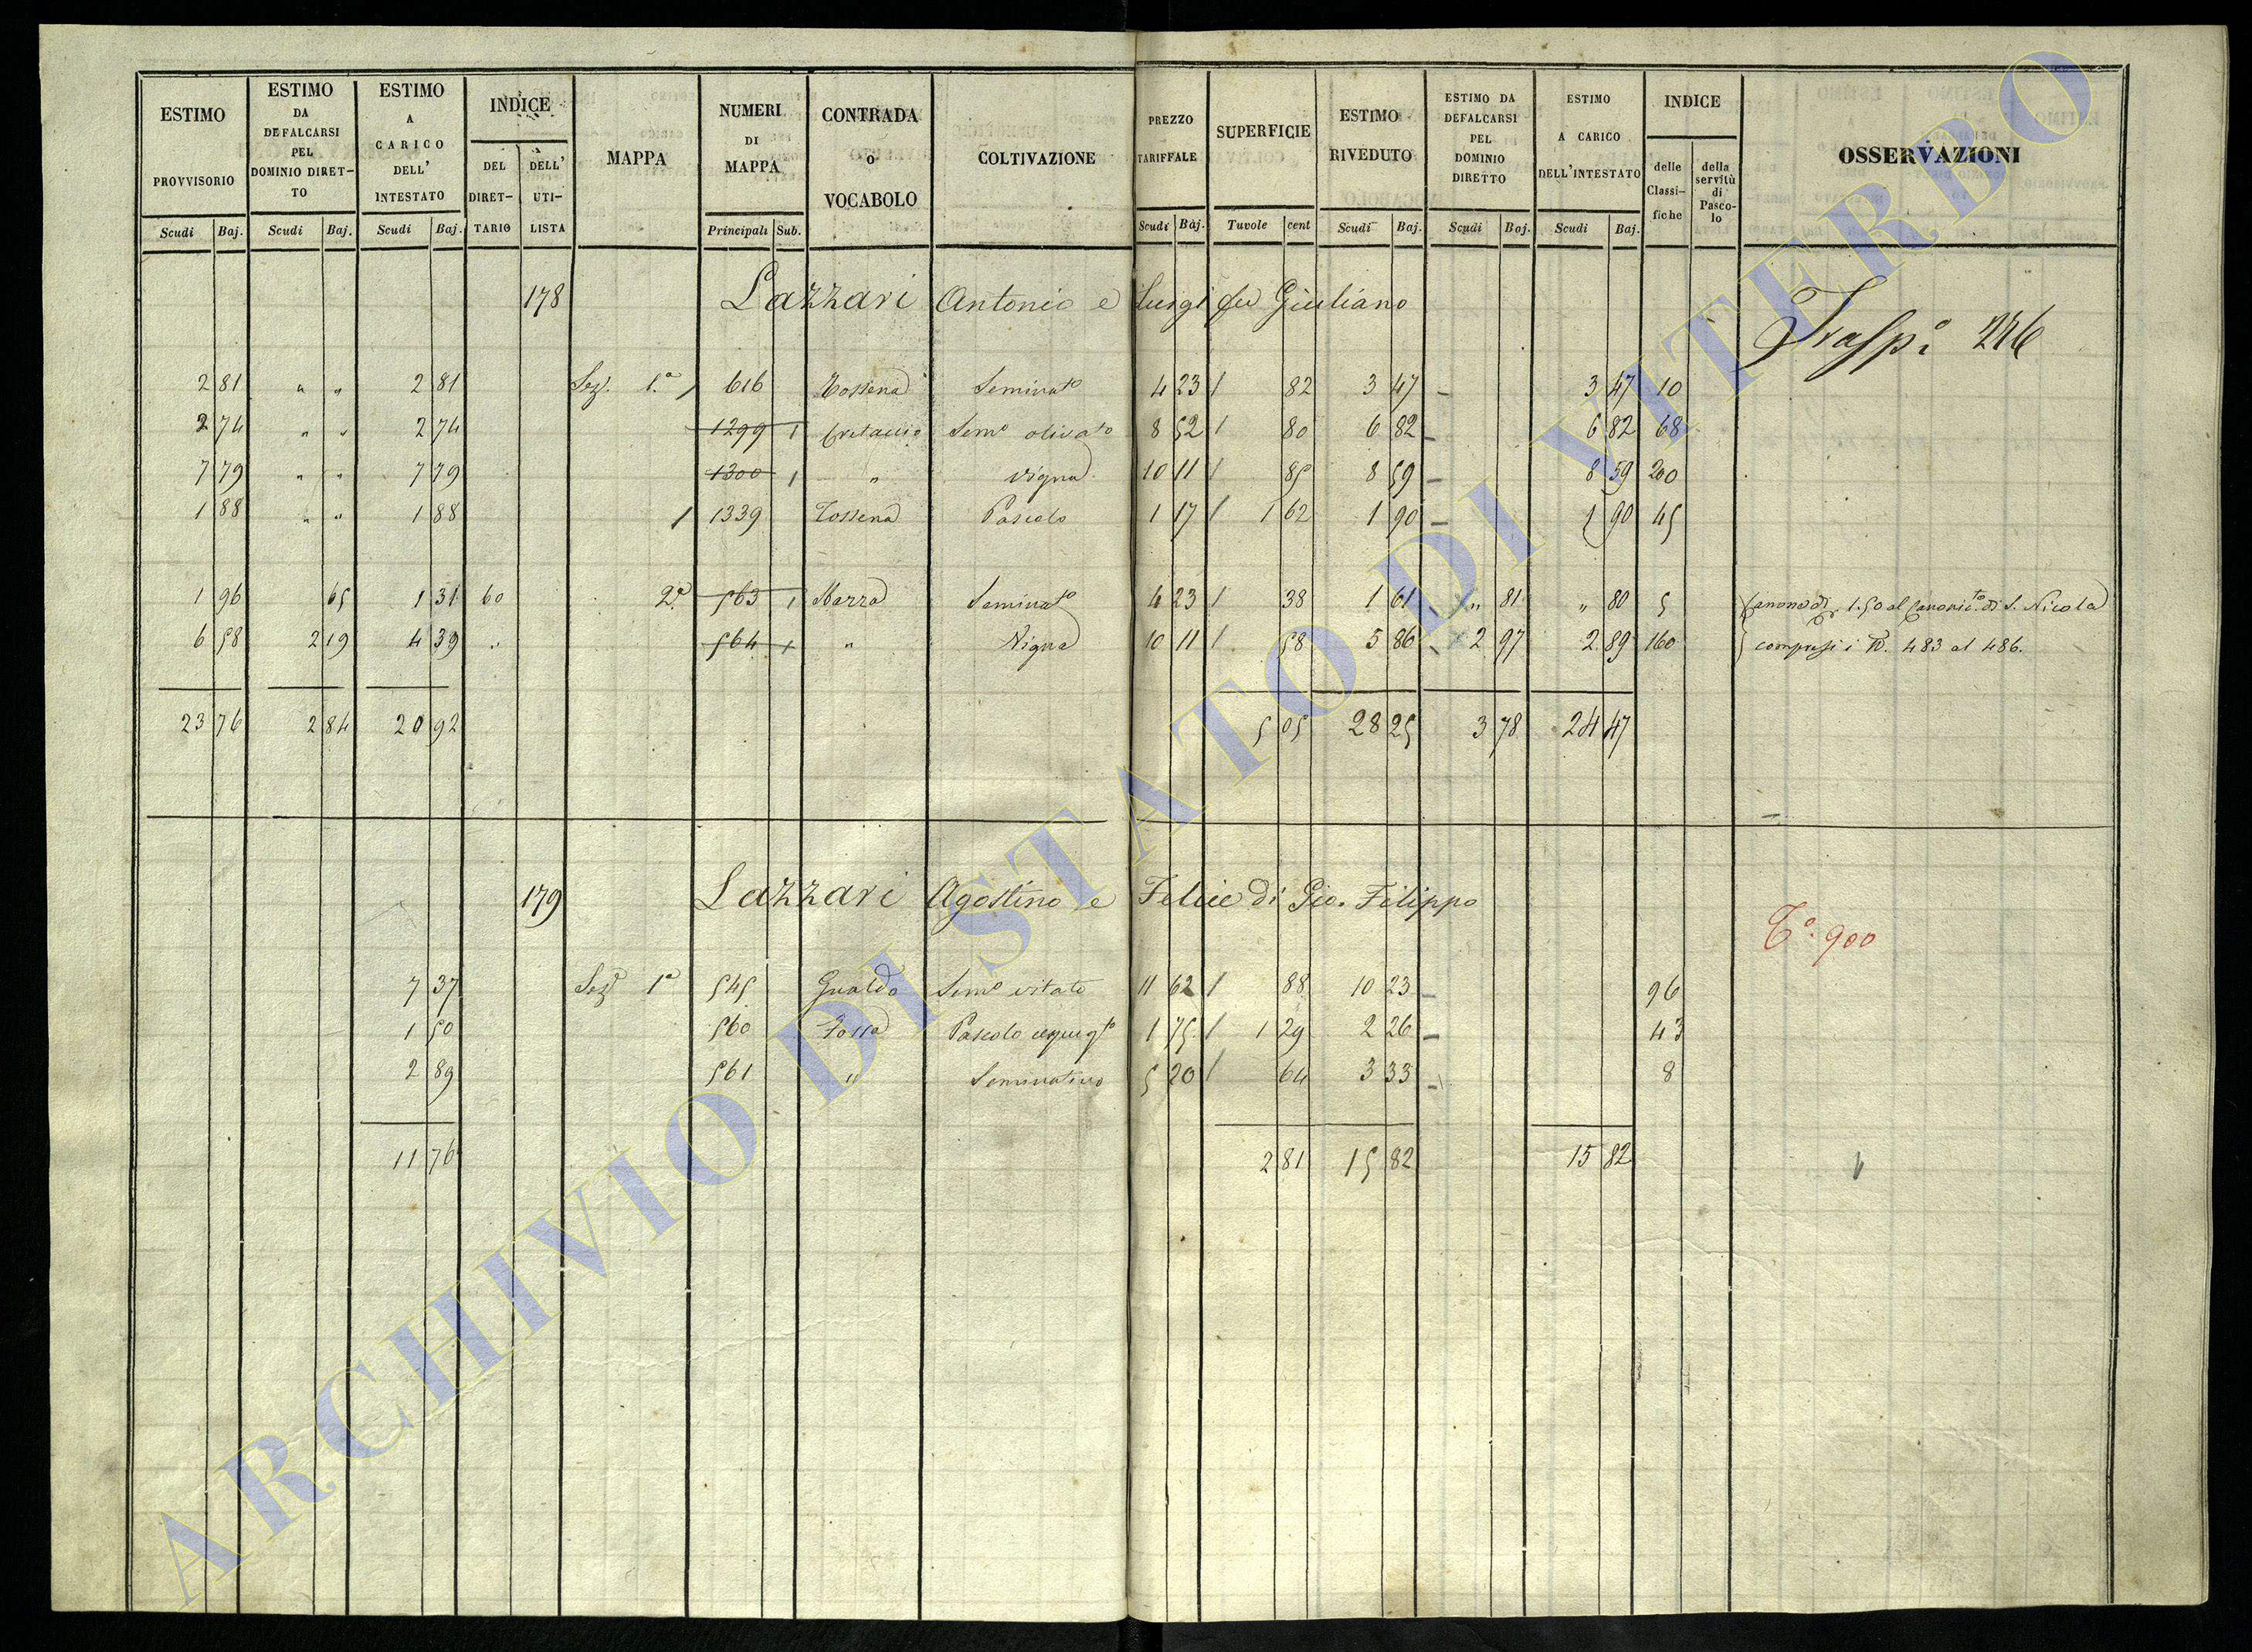 ESTIMO PROVVISORIO Scudi Baj.
ESTIMO DA DEFALCARSI PEL DOMINIO DIRETTO Scudi Baj.
ESTIMO A CARICO DELL' INTESTATO Scudi Baj.
INDICE DEL DIRETTARIO DELL' UTILISTA
MAPPA
NUMERI DI MAPPA Principali Sub.
CONTRADA O VOCABOLO
COLTIVAZIONE
PREZZO TARIFFALE Scudi Baj.
SUPERFICIE Tavole cent
ESTIMO RIVEDUTO Scudi Baj.
ESTIMO DA DEFALCARSI PEL DOMINIO DIRETTO Scudi Baj.
ESTIMO A CARICO DELL'INTESTATO Scudi Baj.
INDICE delle Classifiche della servitù di Pascolo
OSSERVAZIONI
178 Lazzari Antonio e Luigi fu Giuliano
Trasp.º 246
2 81 " " 2 81 Sez. 1.ª 616 Tossena Seminat.º 4 23 82 3 47 3 47 10
2 74 " " 2 74 1299 1 Cretaccio Sem.º olivato 8 52 80 6 82 6 82 68
7 79 " " 7 79 1300 1 " Vigna 10 11 85 8 59 8 59 200
1 88 " " 1 88 1339 Tossena Pascolo 1 17 1 62 1 90 1 90 45
1 96 65 1 31 60 2.ª 563 1 Mazza Seminat.º 4 23 38 1 61 " 81 " 80 5 Canone di 1.50 al Canonic.to di S. Nicola
6 58 2 19 4 39 " 564 1 " Vigna 10 11 58 5 86 2 97 2 89 160 compresi i N. 483 al 486.
23 76 2 84 20 92 5 05 28 25 3 78 24 47
179 Lazzari Agostino e Felice di Gio. Filippo
T.º 900
7 37 Sez.e 1ª 545 Gualdo Sem.º vitato 11 62 88 10 23 96
1 50 560 Fossa Pascolo 1 75 1 29 2 26 43
2 89 561 " Seminativo 5 20 64 3 33 8
11 76 2 81 15 82 15 82
ARCHIVIO DI STATO DI VITERBO